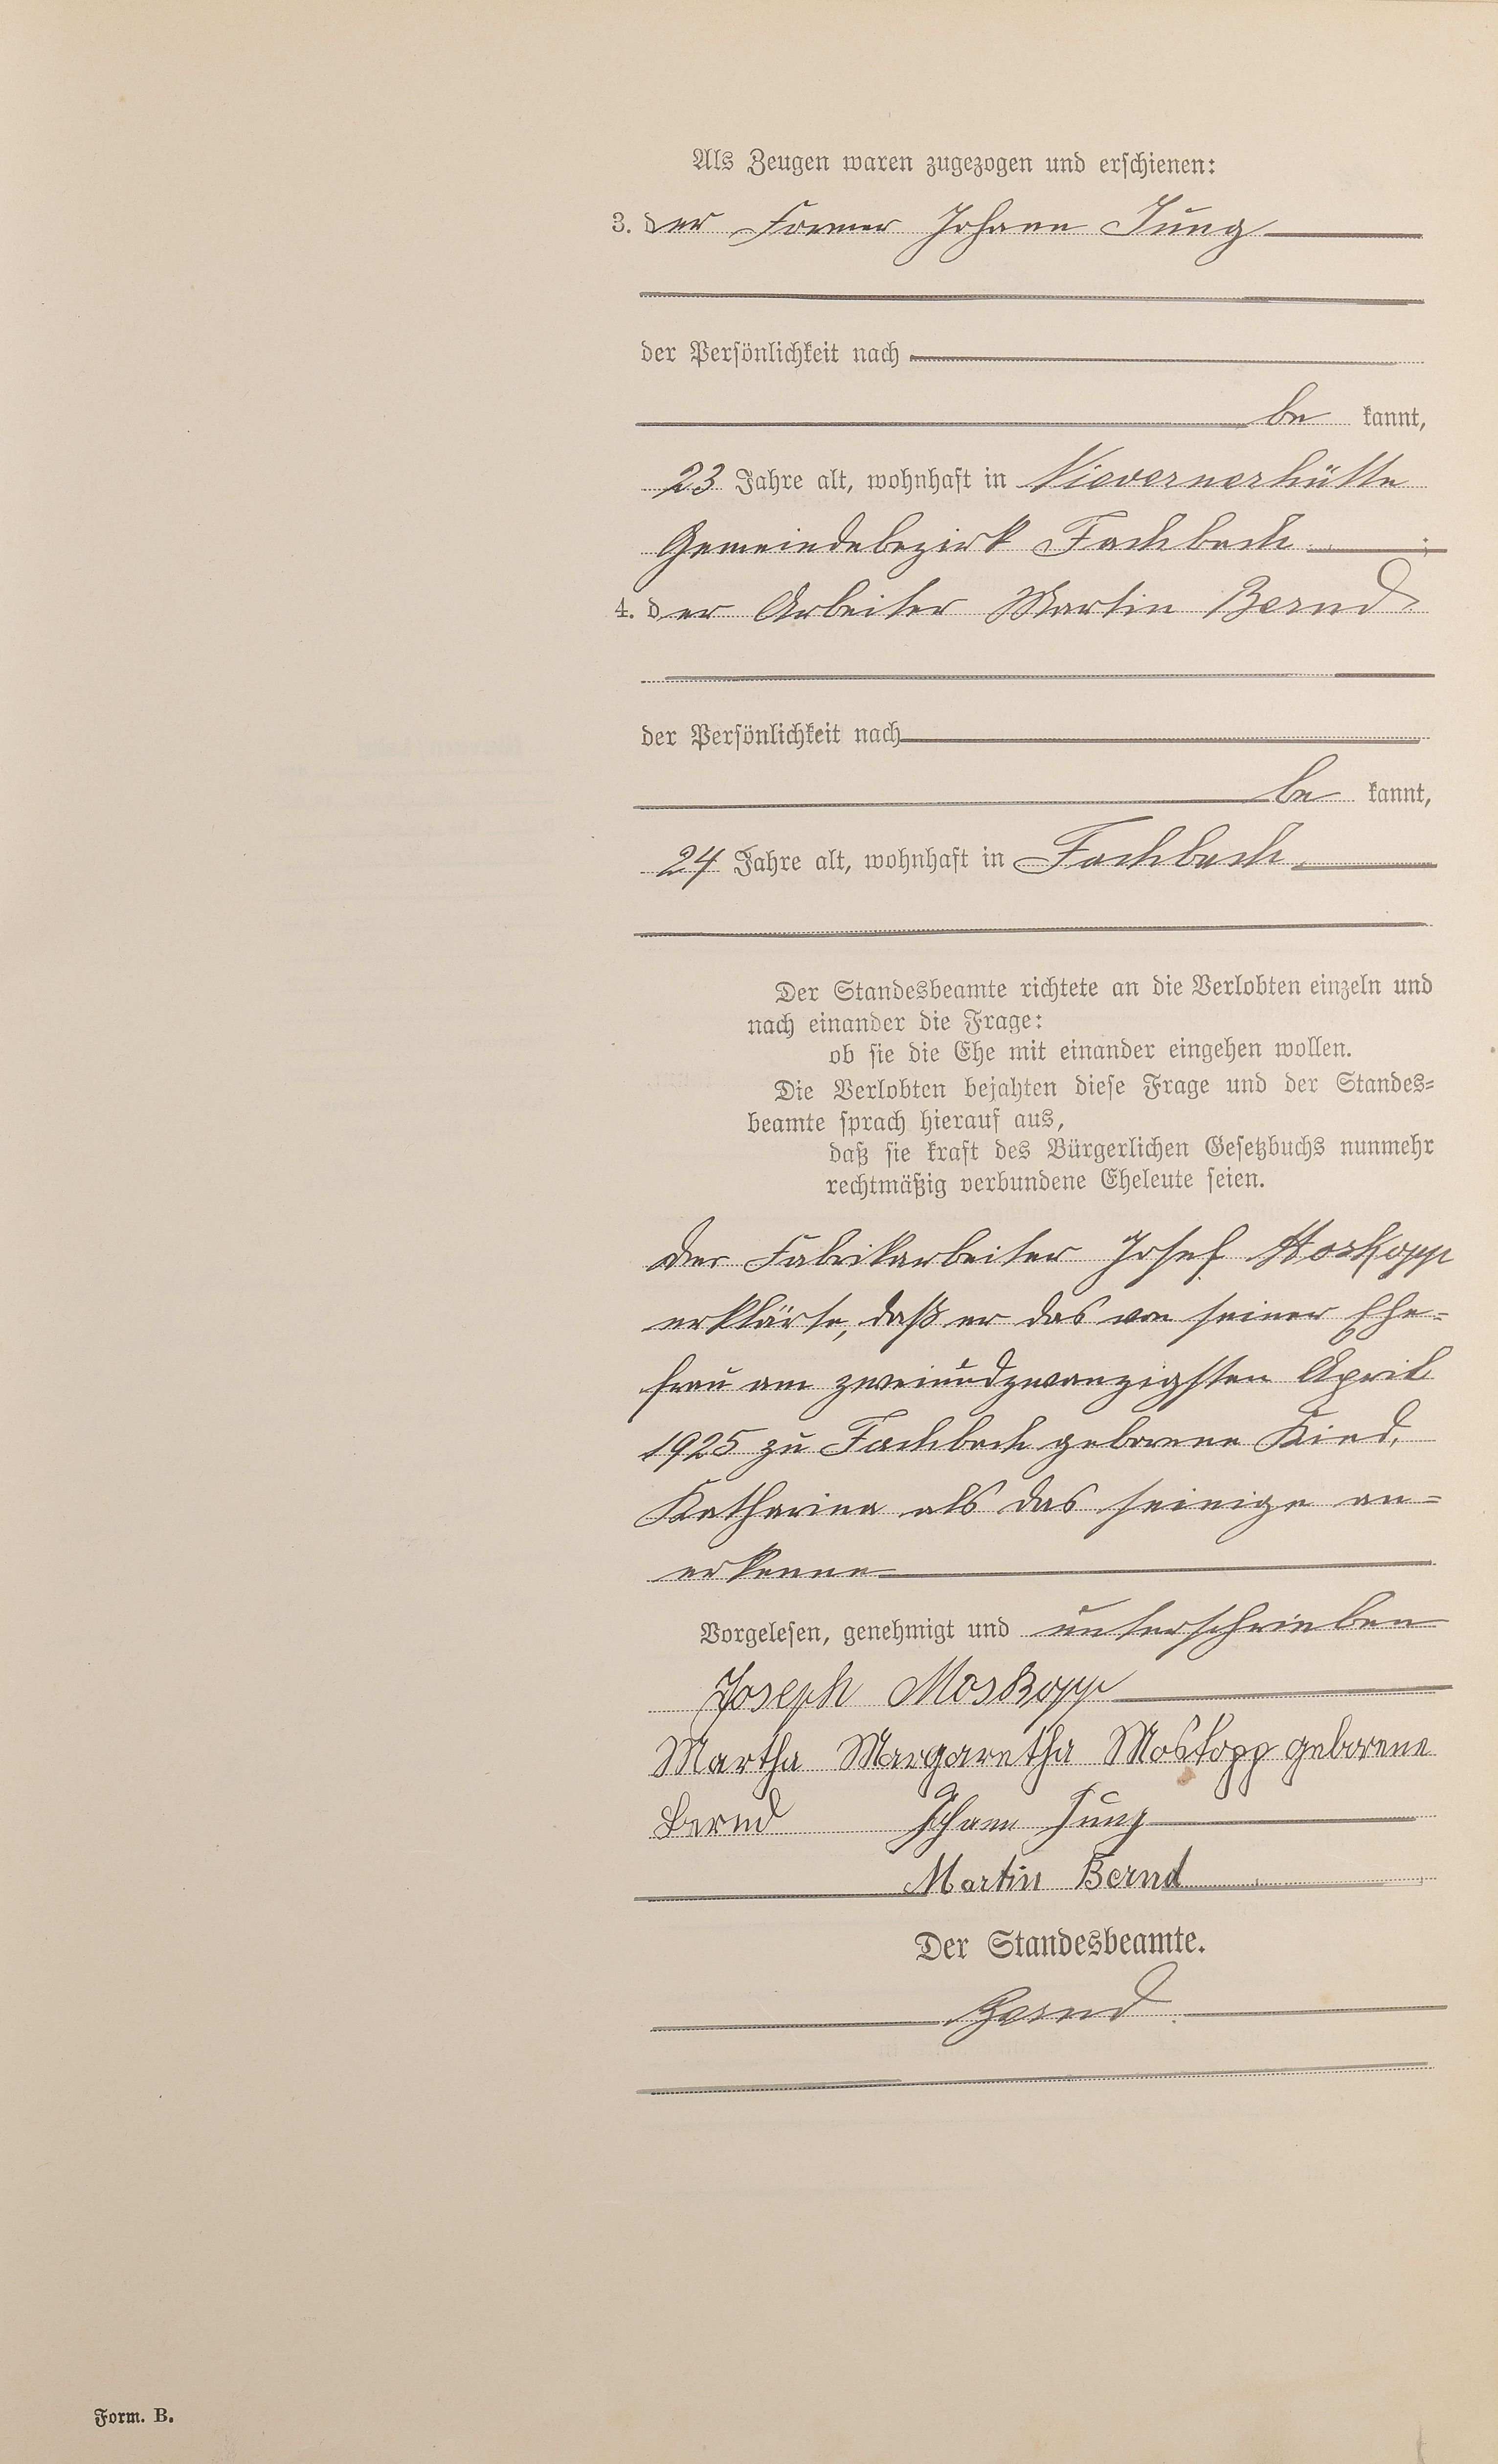 Als Zeugen waren zugezogen und erschienen:
3. der Former Johann Jung
der Persönlichkeit nach
be kannt,
23 Jahre alt, wohnhaft in Nievernerhütte
Gemeindebezirk Fachbach
4. der Arbeiter Martin Bernd
der Persönlichkeit nach
be kannt,
24 Jahre alt, wohnhaft in Fachbach.
Der Standesbeamte richtete an die Verlobten einzeln und
nach einander die Frage:
ob sie die Ehe mit einander eingehen wollen.
Die Verlobten bejahten diese Frage und der Standes-
beamte sprach hierauf aus,
daß sie kraft des Bürgerlichen Gesetzbuchs nunmehr
rechtmäßig verbundene Eheleute seien.
Der Fabrikarbeiter Josef Moskopp
erklärte, daß er das von seiner Ehe-
frau am zweiundzwanzigsten April
1925 zu Fachbach geborene Kind,
Katharina als das seinige an-
erkenne
Vorgelesen, genehmigt und unterschrieben
Joseph Moskopp
Martha Margaretha Moskopp geborene
Bernd Johann Jung
Martin Bernd
Der Standesbeamte.
Bernd.
Form. B.